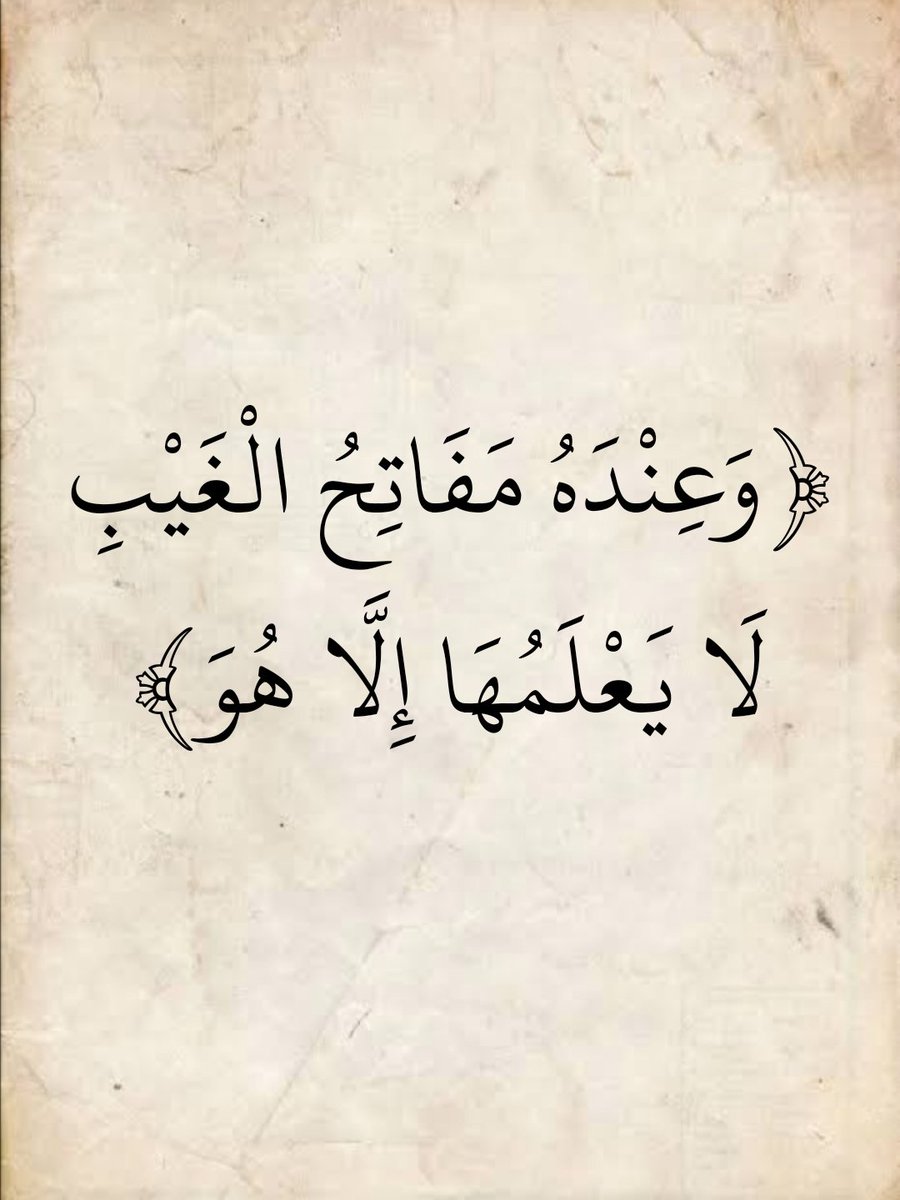 ﴿وَعِنْدَهُ مَفَاتِحُ الْغَيْبِ
لَا يَعْلَمُهَا إِلَّا هُوَ﴾